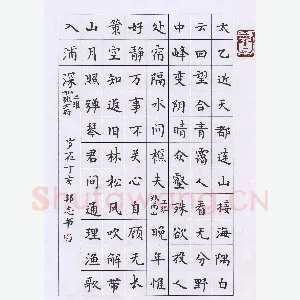 太乙近天都连山接海隅白
云回望合青霭入看无分野
中峰变阴晴众壑殊欲投人
处宿隔水问樵夫
王维
终南山
晚年惟
好静万事不关心自顾无长
策空知返旧林松风吹解带
山月照弹琴君问通理渔歌
入浦深
王维
酬张少府
岁在丁亥